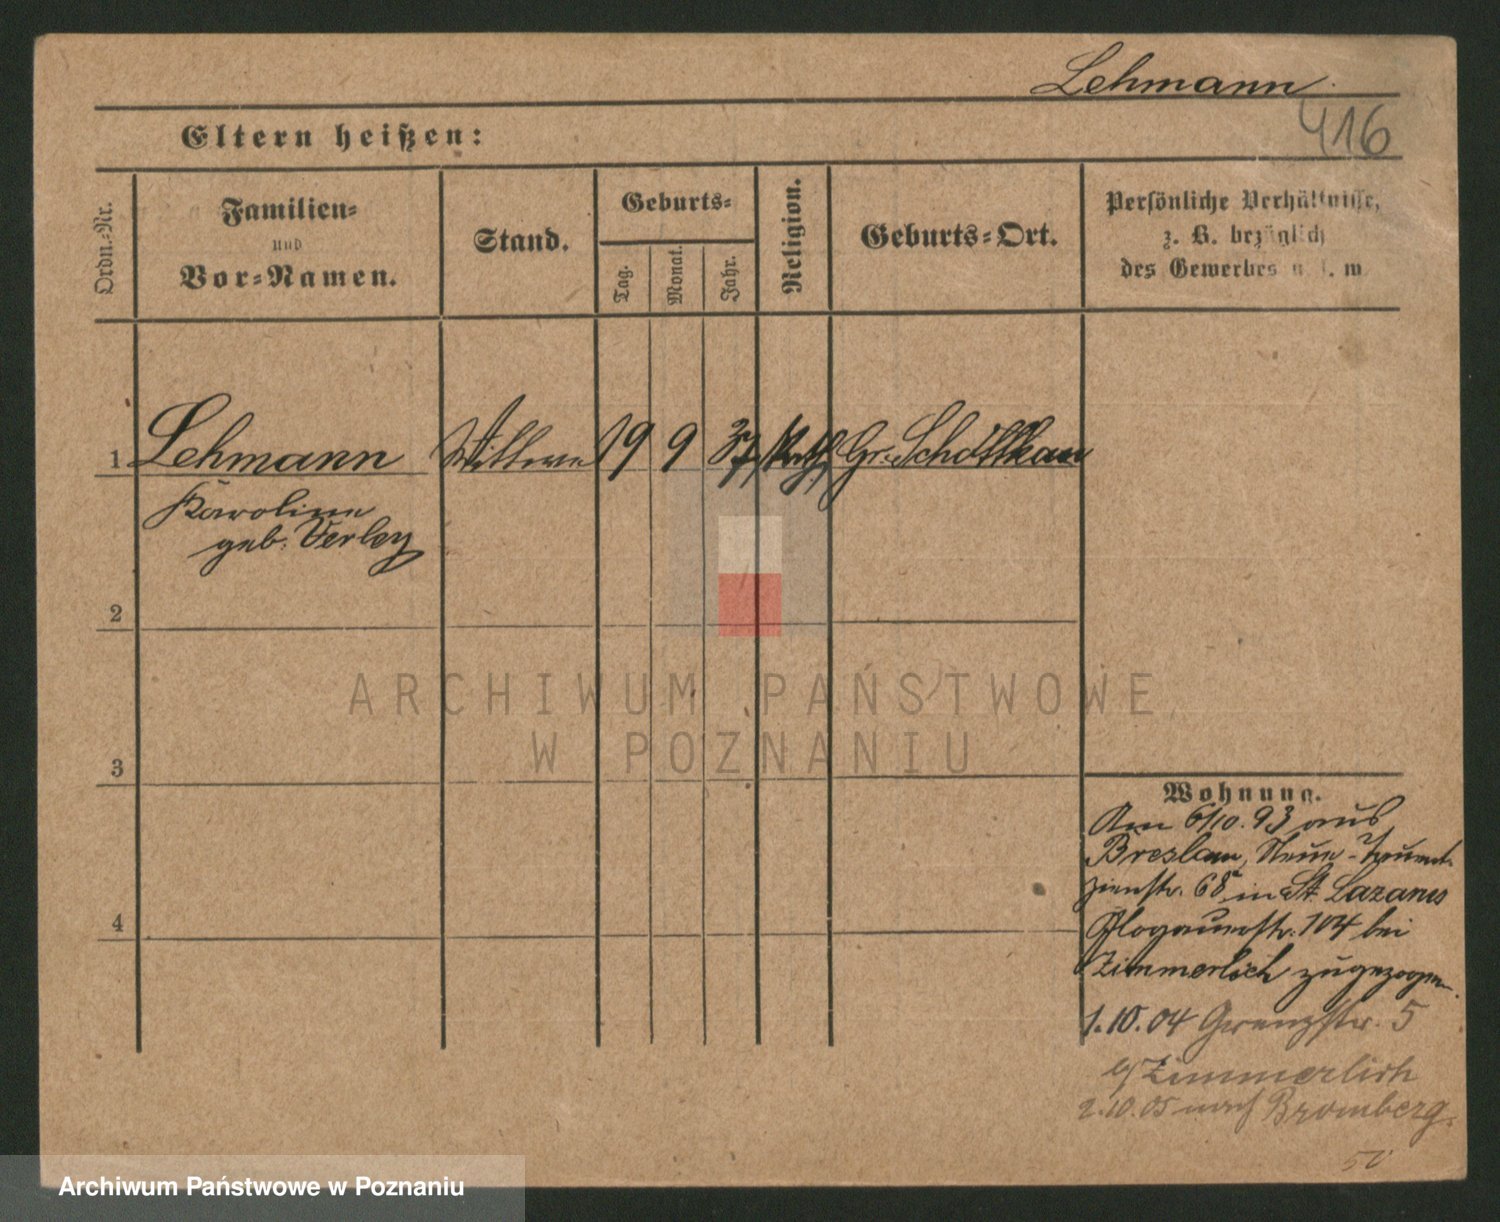 Lehmann
416
Eltern heißen:
Ordn.-Nr.
Familien-
und
Vor-Namen.
Stand.
Geburts-
Tag.
Monat.
Jahr.
Religion.
Geburts-Ort.
Persönliche Verhältnisse,
z. B. bezüglich
des Gewerbes u. s. w.
1 Lehmann Wittwe 19 9 37 kath. Gr. Schottkau
Karoline
geb. Verley
2
3
4
Wohnung.
Am 6/10. 93 aus
Breslau, Neue-Tauent-
zienstr. 68 in St. Lazarus
Glogauerstr. 104 bei
Zimmerlich zugezogen.
1.10.04 Grenzstr. 5
b/ Zimmerlich
2.10.05 nach Bromberg.
50
ARCHIWUM PAŃSTWOWE
W POZNANIU
Archiwum Państwowe w Poznaniu